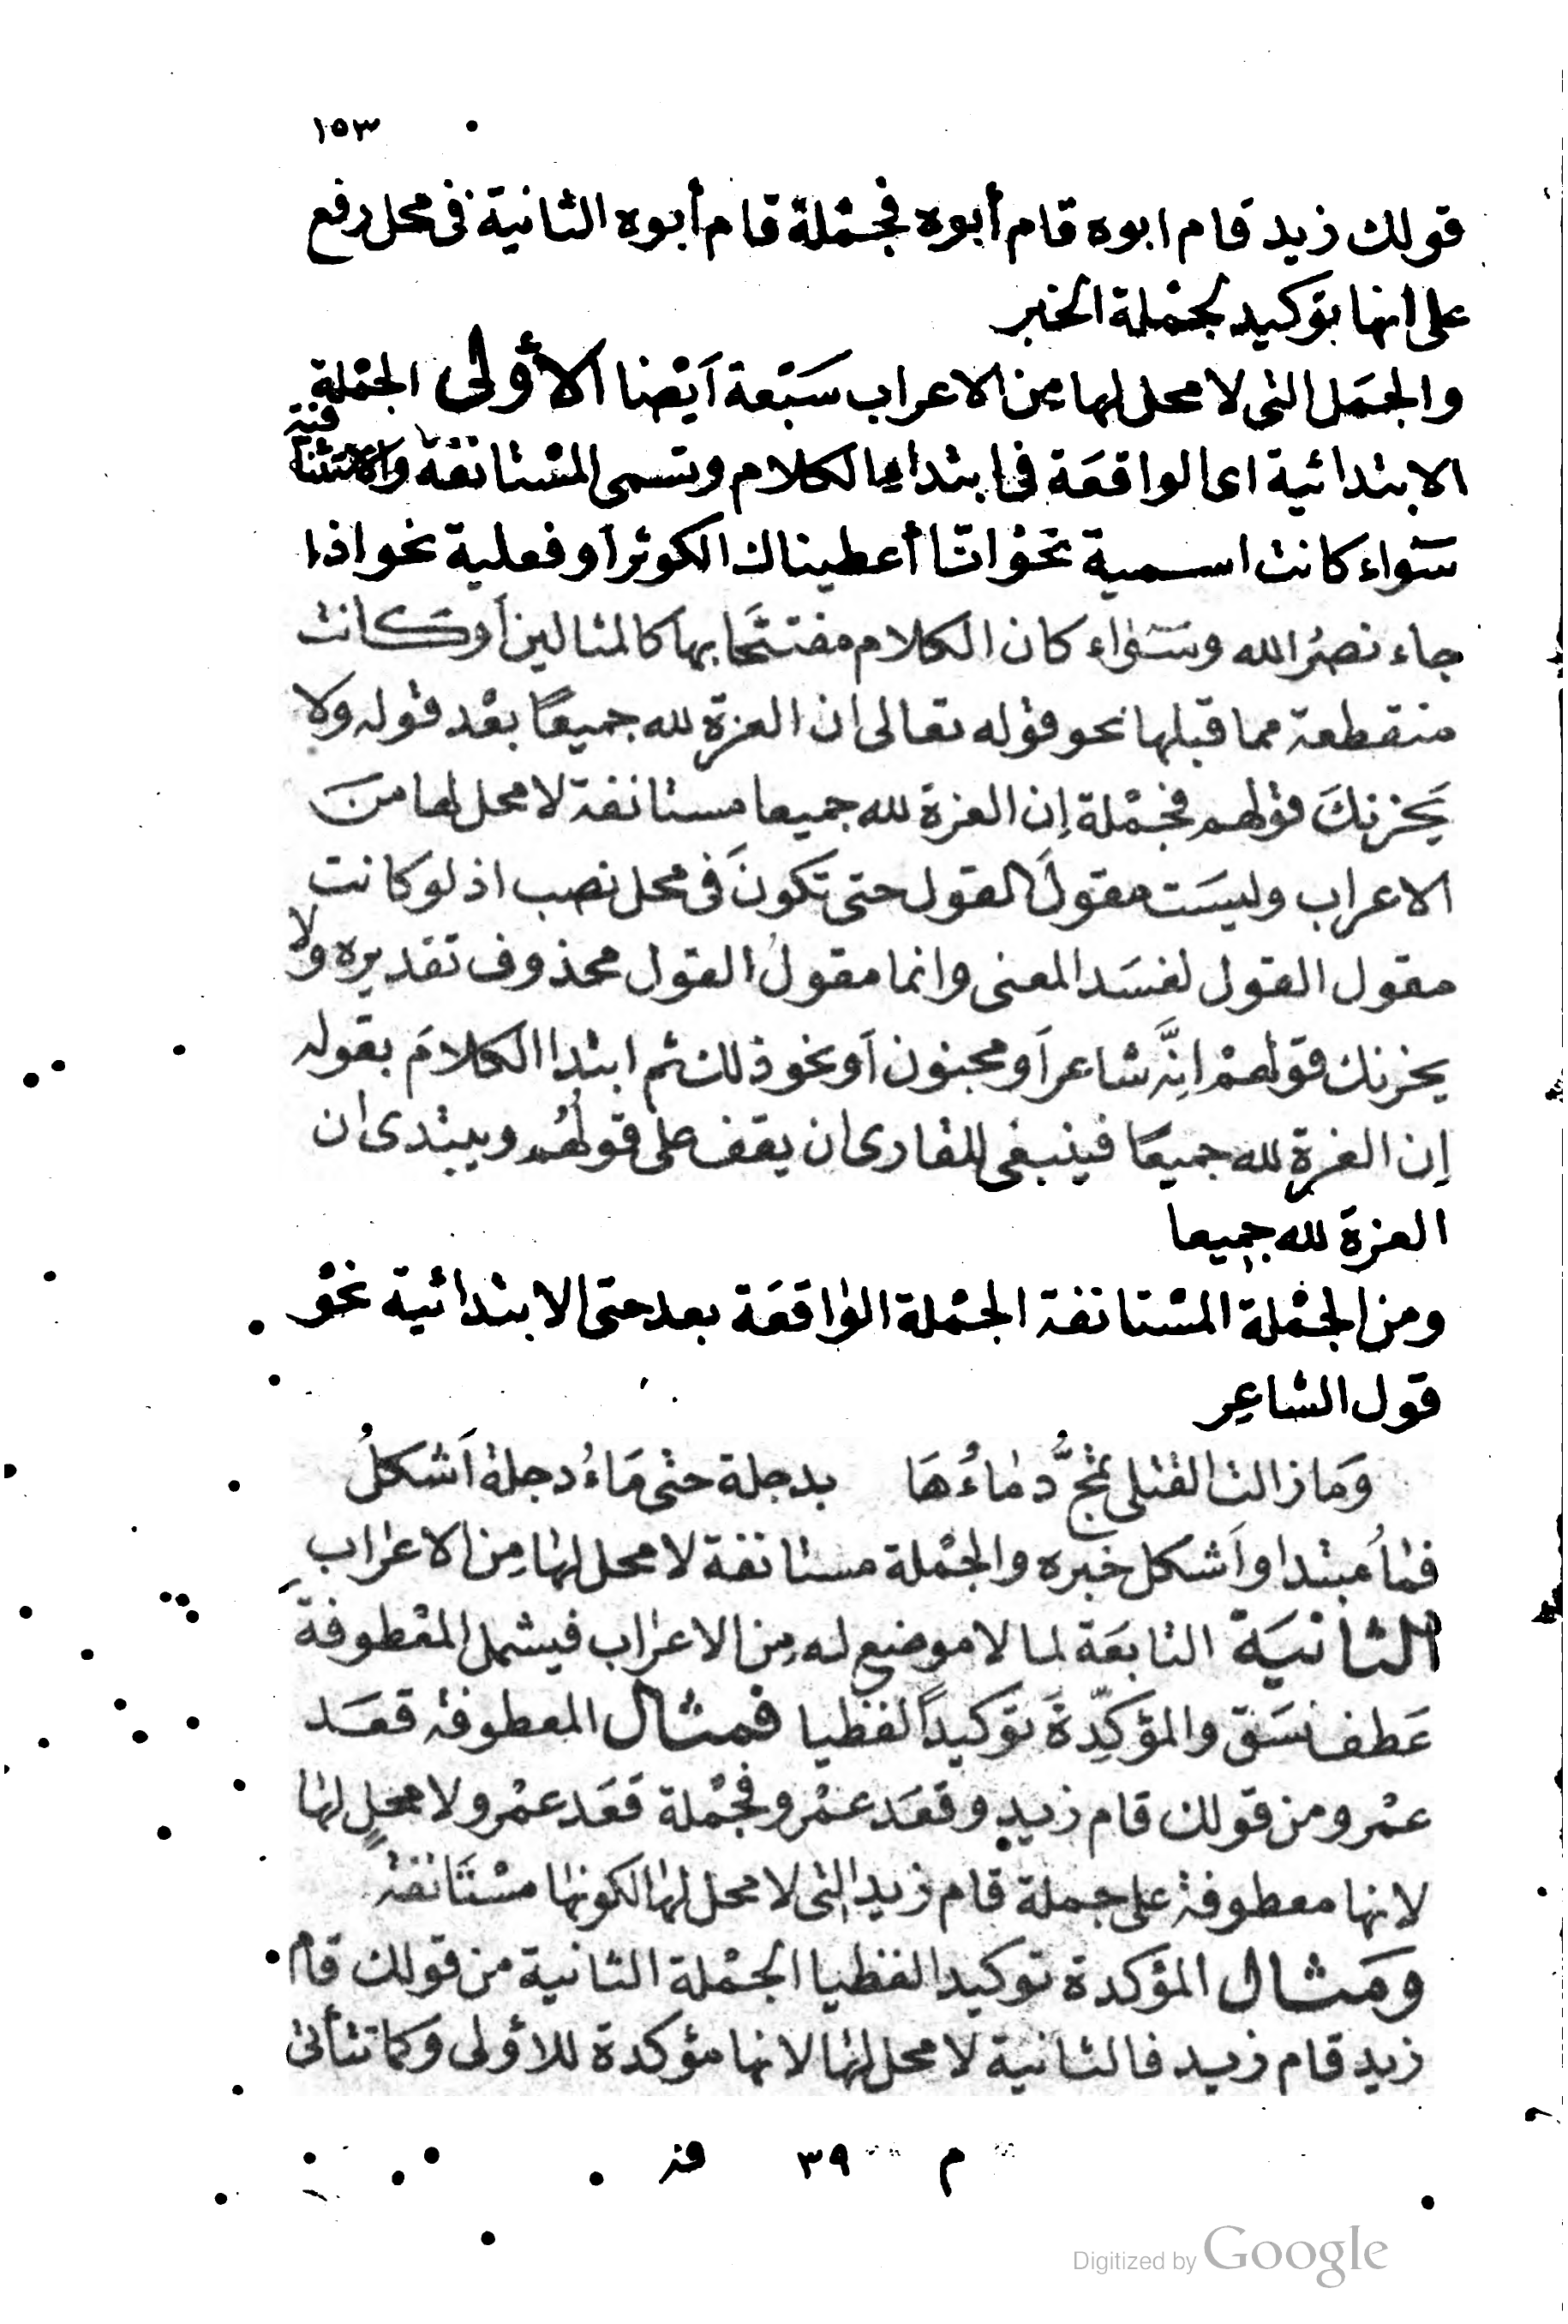 ١٥٣
قولك زيد قام ابوه قام أبوه فجمْلة قام أبوه الثانية فى محل رفع
على انها توكيد لجمْلة الخبر
والجمَل التى لا محل لها مِن الاعراب سَبْعة اَيْضا الأولى الجمْلة
الابتدائية اى الواقعَة فى ابتداء الكلام وتسمى المسْتانفة والاستئنا
فية
سَواء كانت اسمية نحْو انّا أعطيناك الكوثر اَو فعلية نحو اذا
جاء نصرُ الله وسَوَاء كان الكلام مفتتَحا بها كالمثالين اَو كانت
منقطعة مما قبلها نحو قوْله تعالى ان العزة لله جميعًا بعْد قوْله ولا
يَحْزنكَ قوْلهم فجمْلة اِن العزة لله جميعا مستانفة لا محل لها منَ
الاعراب وليسَت مقولَ القول حتى تكونَ فى محل نصب اذ لو كانت
مقول القول لفسَد المعنى وانما مقولُ القول محذوف تقديره ولا
يحزنك قولهمْ اِنَّه شاعر اَو مجنون اَو نحو ذلك ثم ابتدا الكلامَ بقوله
اِن العزة لله جميعًا فينبغى للقارى ان يقف على قولهُم ويبتدى ان
العزة لله جميعا
ومن الجمْلة المسْتانفة الجمْلة الوَاقعَة بعد حتى الابتدائية نحْو
قول الشاعِر
وَمَا زالت القتلى تمجُّ دمَاءُهَا بدجلة حتى مَاءُ دجلة اَشكلُ
فمَاُ مبتدا واَشكل خبره والجمْلة مستانفة لا محل لهَا مِن الاعرَاب
الثانيَة التابعَة لما لا موضع له مِن الاعرَاب فيشمل المعْطوفةَ
عَطف نسَق والمؤكِّدَة توكيداً لفظيا فمثال المعطوفة قعَد
عمْرو من قولك قام زيد وقعَد عمْرو فجمْلة قعَد عمْرو لا محل لهَا
لانها معطوفة على جملة قام زيد التى لا محل لهَا لكونهَا مسْتَانفة
ومثال المؤكدة توكيدا لفظيا الجمْلة الثانية من قولك قام
زيد قام زيد فالثانية لا محل لهَا لانها مؤكدة للأولى وكما تتأتى
م ٣٩ فذ
Digitized by Google